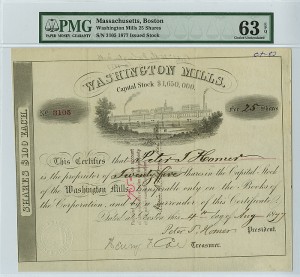 PMG
PAPER MONEY GUARANTY
Massachusetts, Boston
Washington Mills 25 Shares
S/N 3103 1877 Issued Stock
63 EPQ
Choice Uncirculated
WASHINGTON MILLS.
Capital Stock $1,650,000.
No 3103
For 25 Shares
SHARES $100 EACH.
This Certifies that Peter T Homer
is the proprietor of Twenty five shares in the Capital Stock
of the Washington Mills transferable only on the Books of
the Corporation, and by a surrender of this Certificate.
Dated at Boston the 4th day of Aug 1877
Peter T. Homer President.
Treasurer.